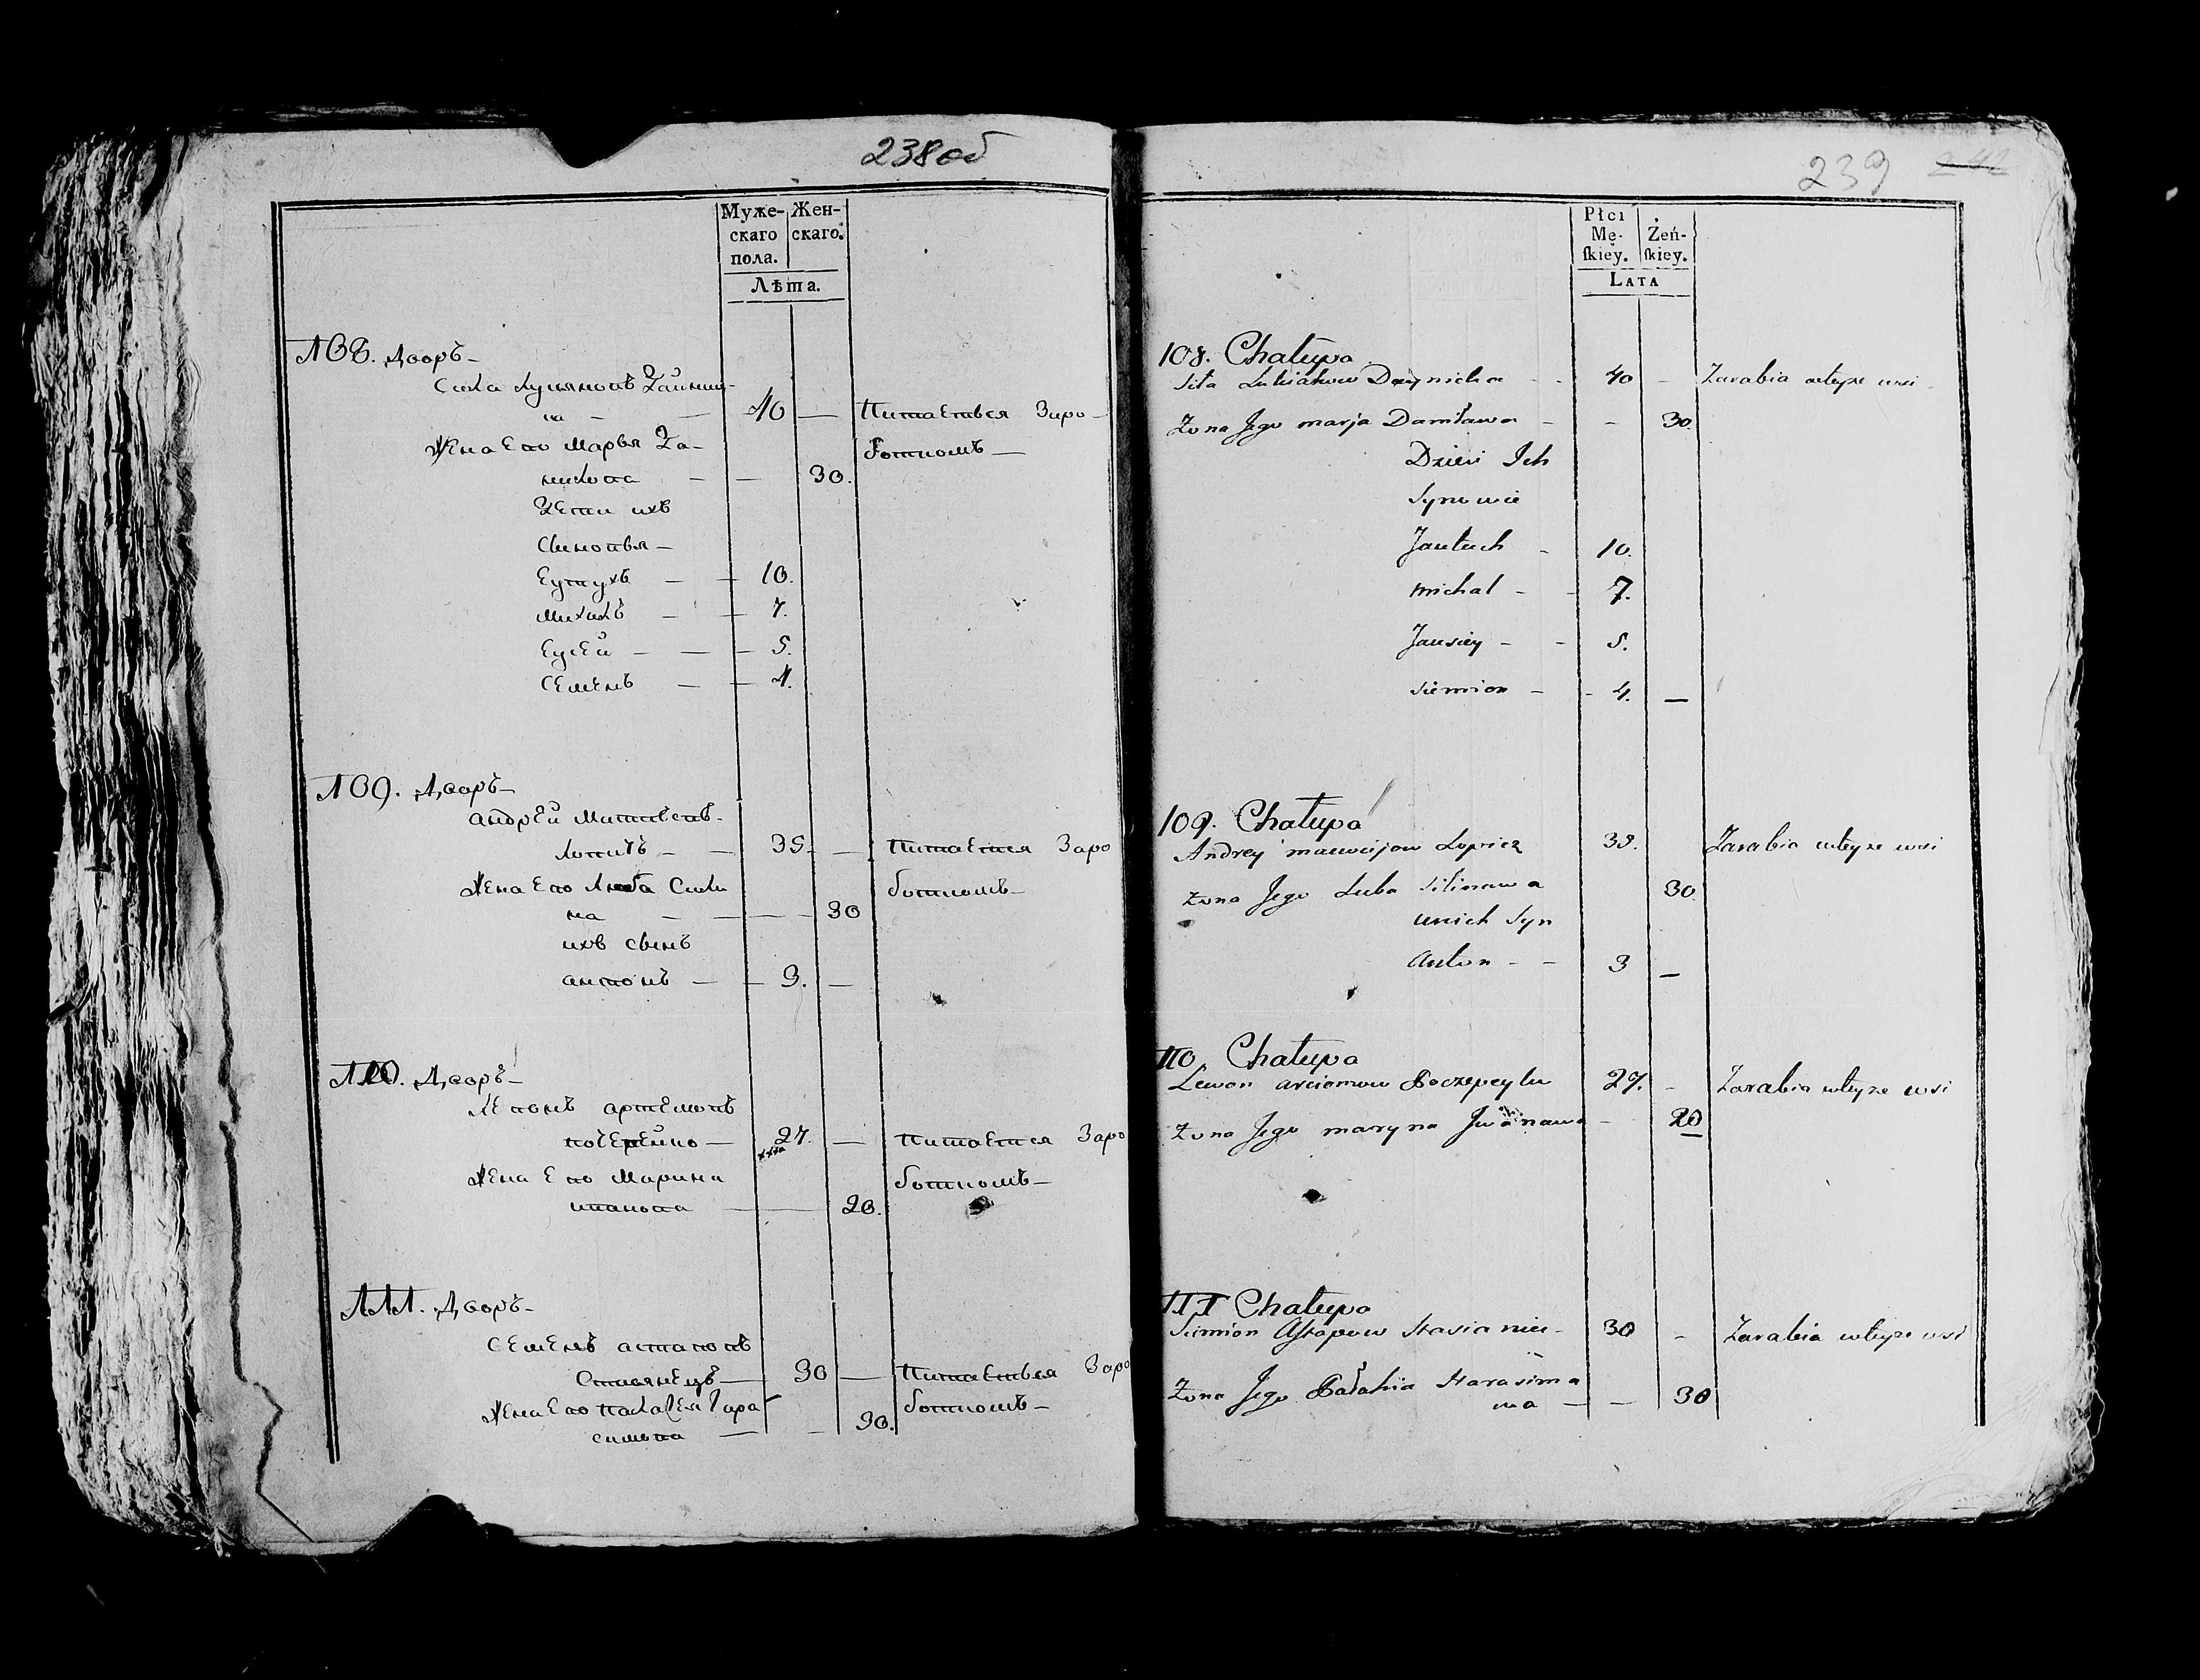 238 об
Муже-
скаго
пола.
Жен-
скаго.
Лѣта.
108. Дворъ
Сила Лукьяновъ Дайни-
ка 40 — Питаеться Заро-
Жена Ево Марья Да-
боткомъ
нилова — — 30.
Дети ихъ
Синовья
Еутухъ — 10.
Михалъ — 7.
Еусей — 5.
Семенъ — 4.
109. Дворъ
Андрей Матвеевъ
Лопичъ — 35. — Питается Заро
Жена Ево Люба Сили
боткомъ
на — 30
ихъ сынъ
антонъ — 3. —
110. Дворъ
Левонъ артемовъ
27. — Питается Заро
Жена Ево Марина
боткомъ
ивановa 20.
111. Дворъ
Семенъ астаповъ
Стасянецъ 30 — Питаеться Заро
Жена Ево Палагея Гара
боткомъ
симова 30.
239
Płci
Mę-
skiey.
Żeń-
skiey.
Lata
108. Chałupa
Siła Łukianow Daynieka 40 — Zarabia wteyże wsi
Żona Jego marja Daniława — 30.
Dzieci Ich
Synowie
Jautuch 10.
michał 7.
Jausiey 5.
Siemion 4. —
109. Chałupa
Andrey maciejow Łopicz 35. Zarabia wteyże wsi
Żona Jego Luba Silinawa 30.
unich Syn
Anton 3 —
110. Chałupa
Lewon arciomow 27. — Zarabia wteyże wsi
Żona Jego maryna Jwanawa 20
111 Chałupa
Siemion Astapow Stasianiec 30 — Zarabia wteyże wsi
Żona Jego Pałahia Harasima
wa — — 30